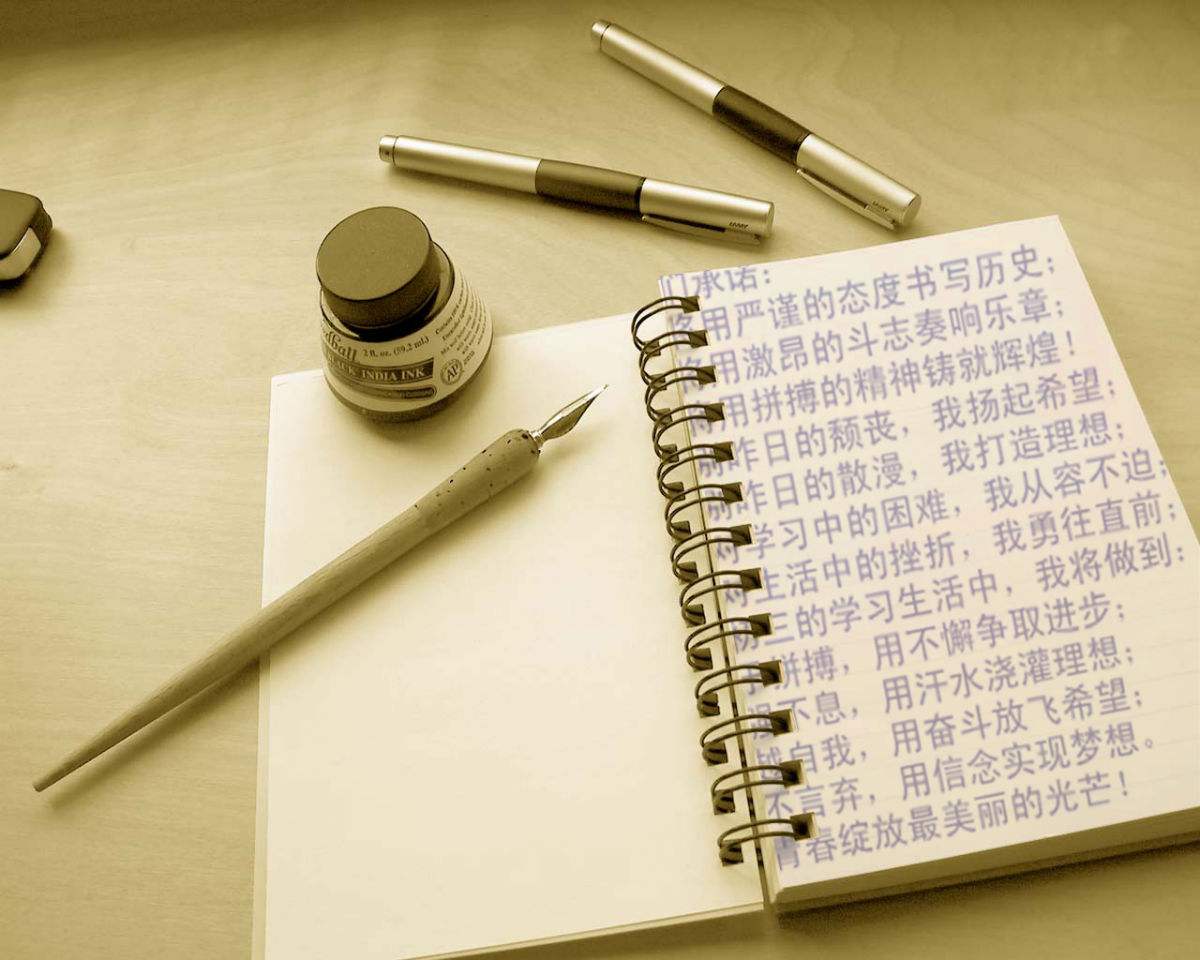 dball
2 fl. oz. (59.2 mL)
INDIA INK
AP
LAMY
LAMY
们承诺：
用严谨的态度书写历史；
用激昂的斗志奏响乐章；
用拼搏的精神铸就辉煌！
昨日的颓丧，我扬起希望；
昨日的散漫，我打造理想；
对学习中的困难，我从容不迫；
对生活中的挫折，我勇往直前；
三的学习生活中，我将做到：
拼搏，用不懈争取进步；
不息，用汗水浇灌理想；
越自我，用奋斗放飞希望；
不言弃，用信念实现梦想。
青春绽放最美丽的光芒！